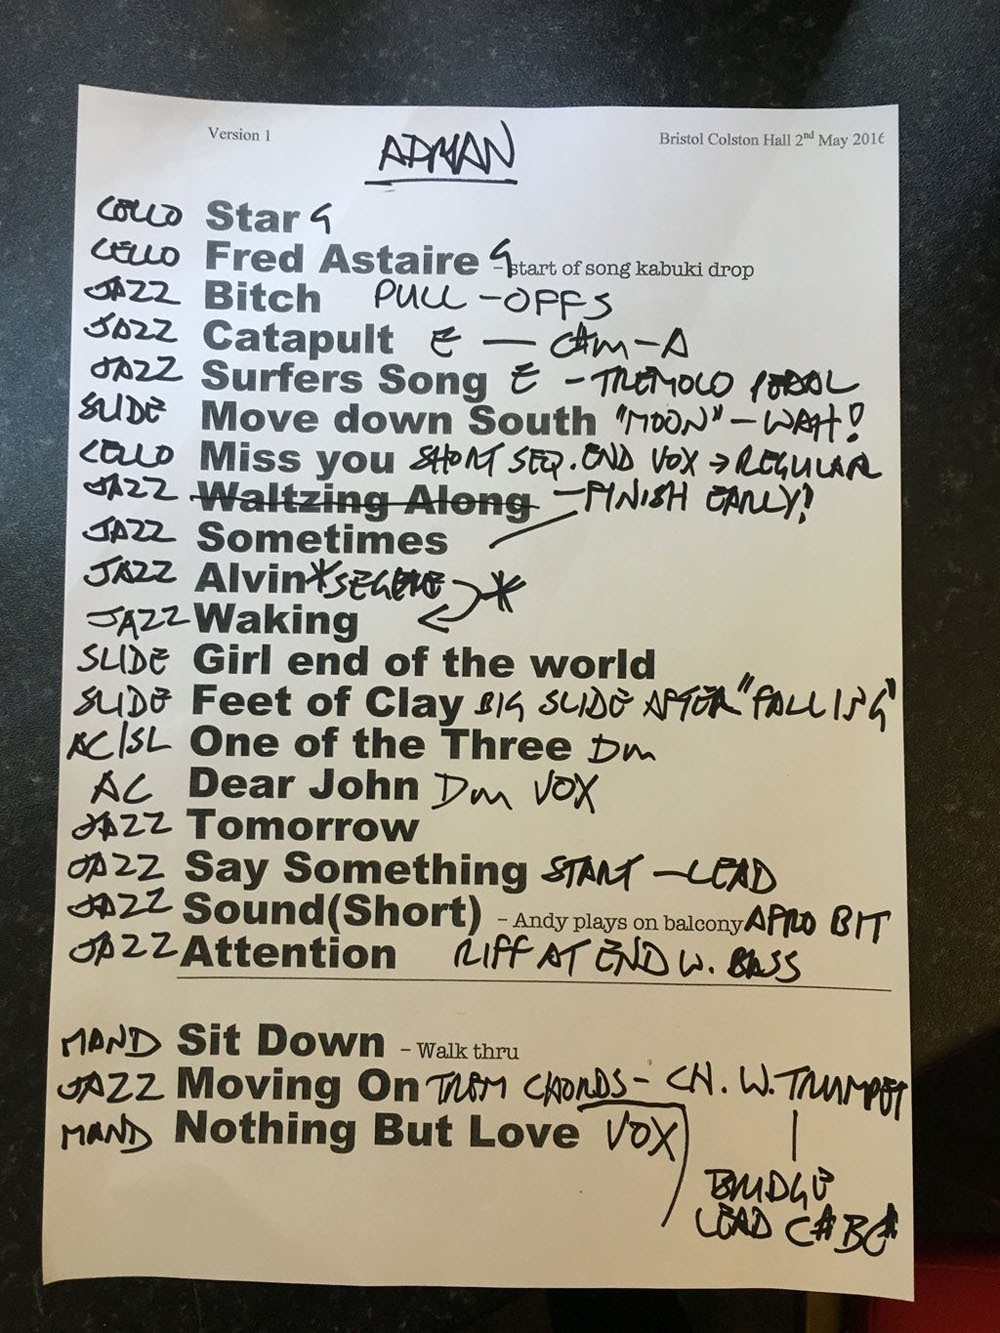 Version 1 ADMAN Bristol Colston Hall 2nd May 2016
CELLO Star G
CELLO Fred Astaire G – start of song kabuki drop
JAZZ Bitch PULL-OFFS
JAZZ Catapult E — C#m-A
JAZZ Surfers Song E - TREMOLO PEDAL
SLIDE Move down South "MOON" - WAH!
CELLO Miss you SHORT SEQ. END VOX → REGULAR
JAZZ Waltzing Along - FINISH EARLY!
JAZZ Sometimes
JAZZ Alvin *SEGEUE *
JAZZ Waking
SLIDE Girl end of the world
SLIDE Feet of Clay BIG SLIDE AFTER "FALLING"
AC/SL One of the Three Dm
AC Dear John Dm VOX
JAZZ Tomorrow
JAZZ Say Something START - LEAD
JAZZ Sound(Short) - Andy plays on balcony AFRO BIT
JAZZ Attention RIFF AT END W. BASS
MAND Sit Down - Walk thru
JAZZ Moving On TREM CHORDS - CH. W. TRUMPET
MAND Nothing But Love VOX
BRIDGE
LEAD C# B C#